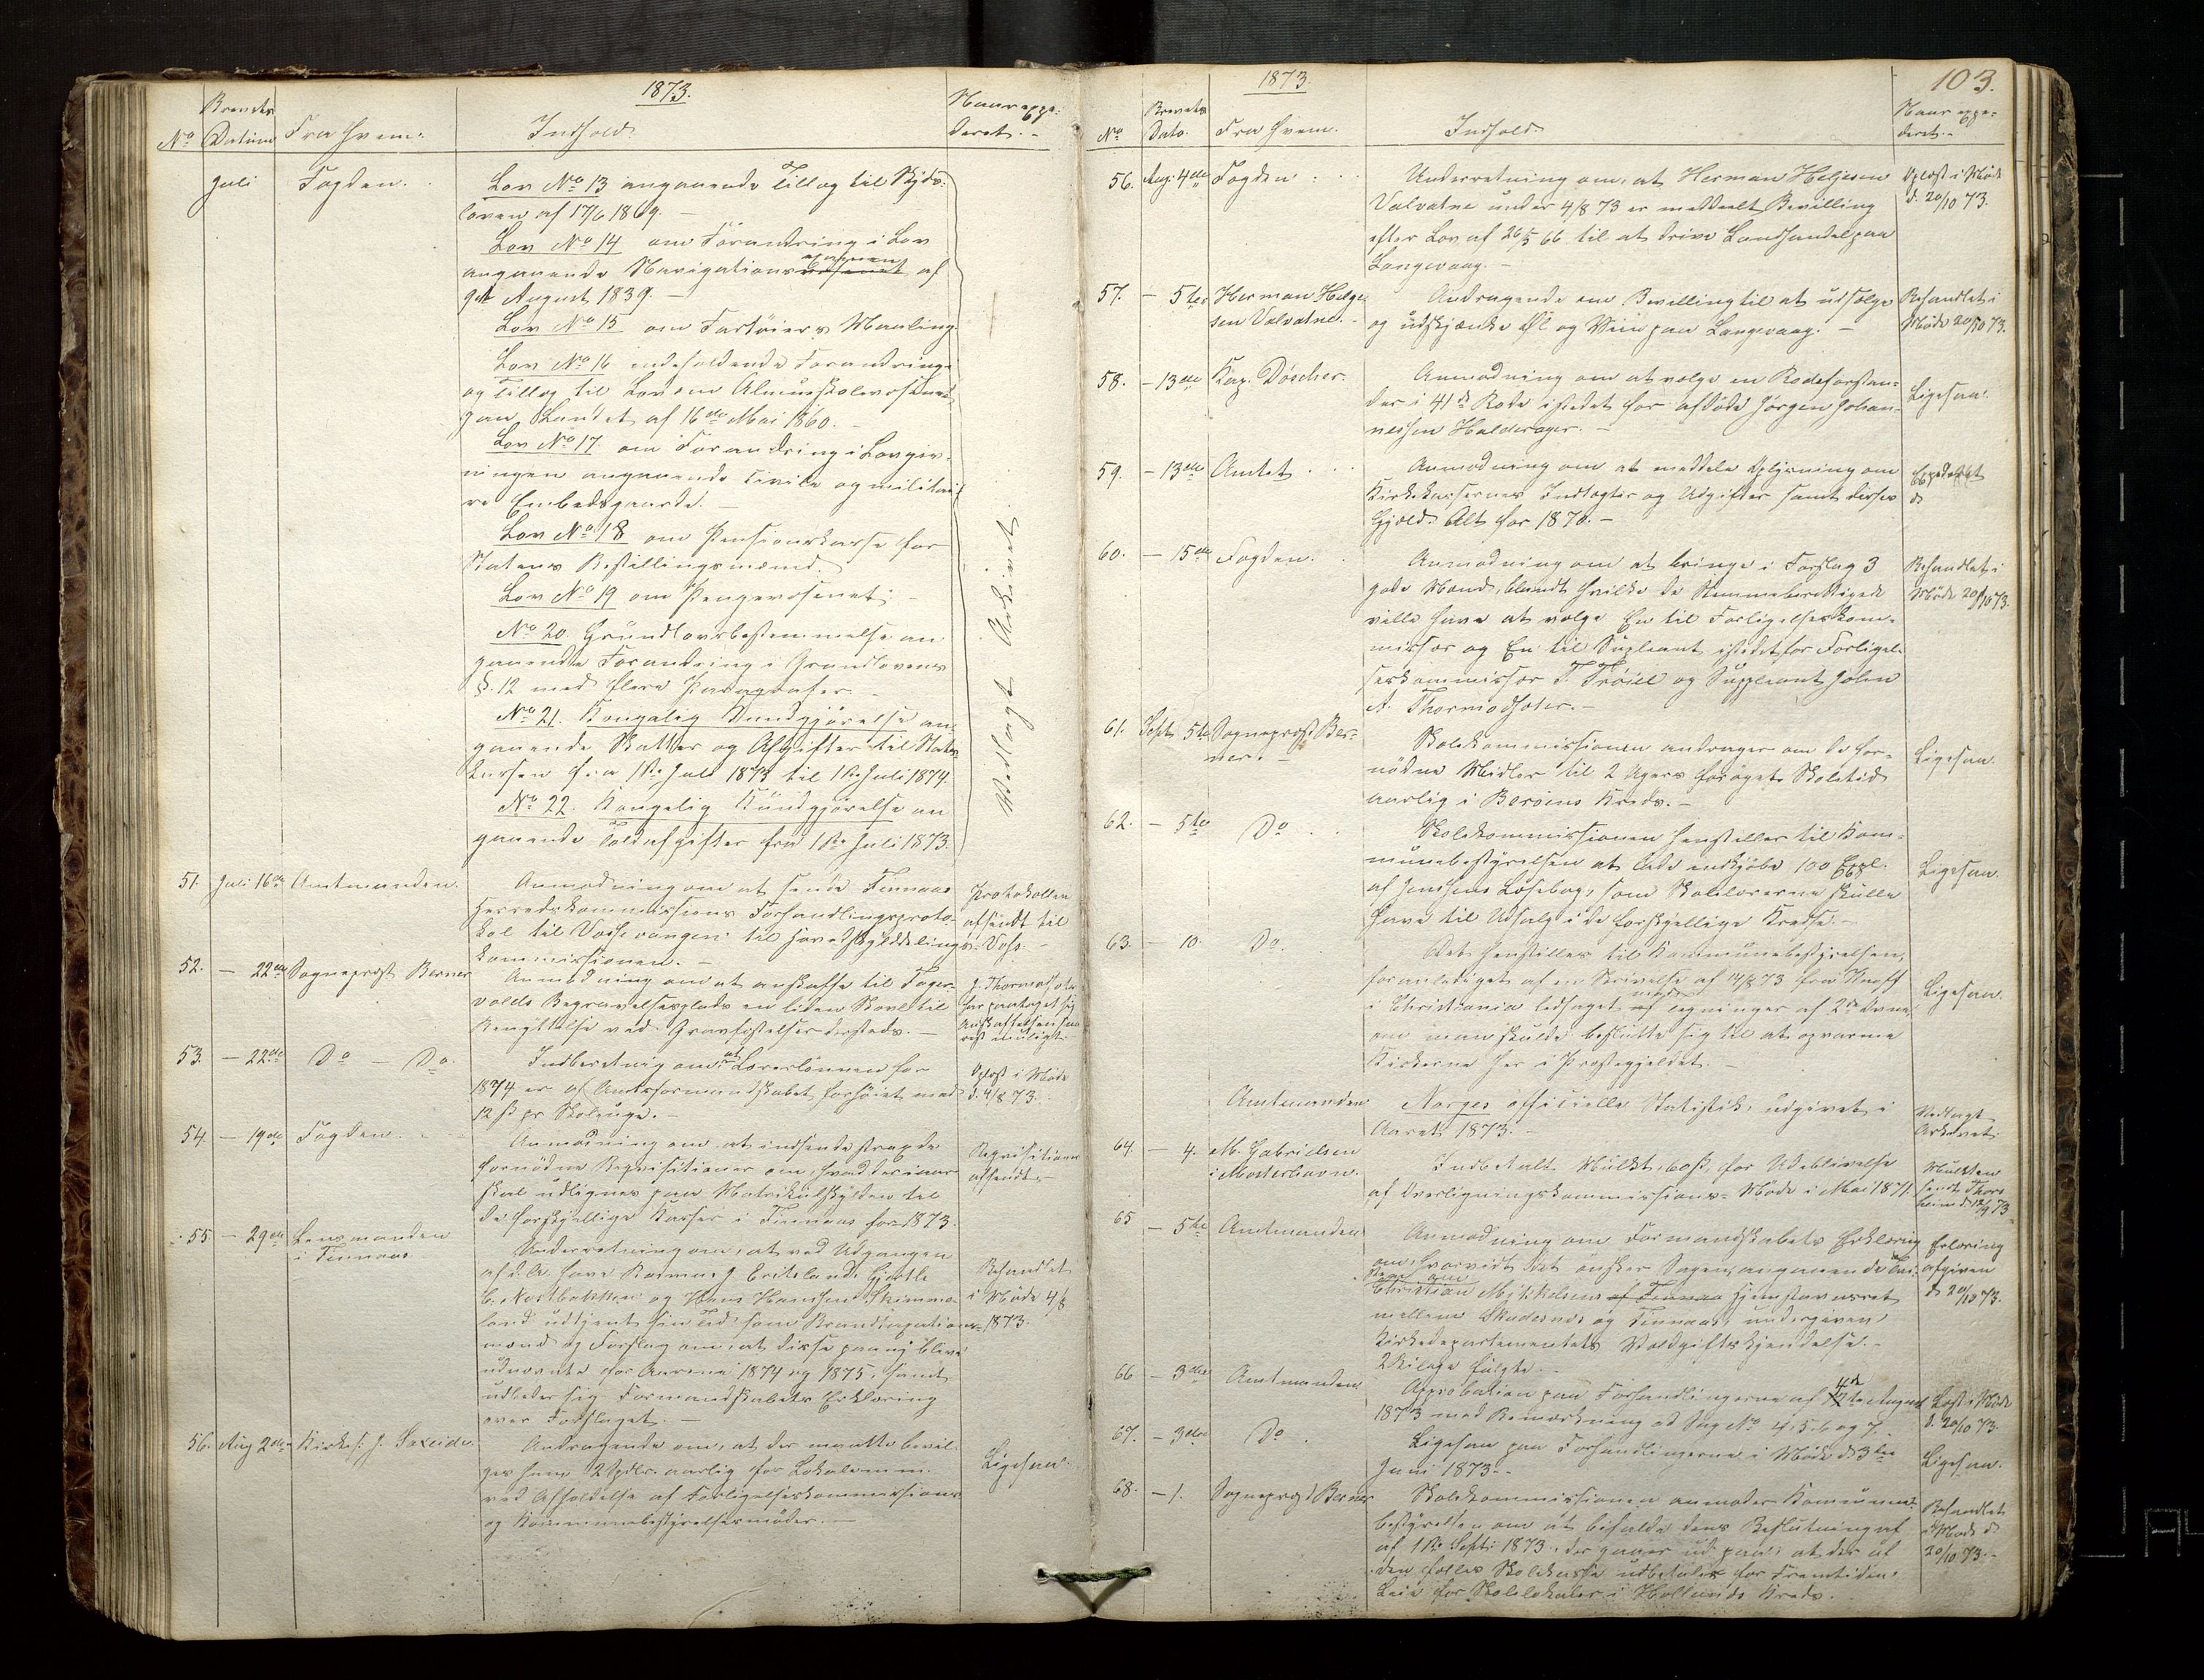 1873.
No
Brevets Datum
Fra hvem.
Indhold.
Naar expe-
deret. -
Juli
Fogden.
Lov No 13 angaaende Tillæg til Skyds-
loven af 17/6 1869. -
Lov No 14 om Forandring i Lov
angaaende Navigations af
9de August 1839. -
Lov No 15 om Fartøiers Maaling.
Lov No 16 indeholdende Forandring
og Tillæg til Lov om Almueskolevæsenet
paa Landet af 16de Mai 1860. -
Lov No 17. om Forandring i Lovgiv-
ningen angaaende civile og militai-
re Embedsgaarde. -
Lov No 18 om Pensionskasse for
Statens Bestillingsmænd.
Lov No 19 om Pengevæsenet. -
No 20. Grundlovsbestemmelse an
gaaende Forandring i Grundlovens
§. 12 med flere Paragrafer. -
No 21. Kongelig Kundgjørelse an
gaaende Skatter og Afgifter til Stats-
kassen fra 1ste Juli 1873 til 1ste Juli 1874.
No 22. Kongelig Kundgjørelse an
gaaende Toldafgifter fra 1ste Juli 1873.
Vedlagt Arkivet.
51. Juli 16de Amtmanden.
Anmodning om at sende Finnaas
Herredskommissions Forhandlingsproto-
kol til Vossevangen til Hovedskylddelings-
kommissionen. -
Protokollen
afsendt til
Voss. -
52. - 22de Sogneprest Berner
Anmodning om at anskaffe til Fager-
volds Begravelsesplads en liden Skovl til
Benyttelse ved Gravfæstelser dersteds. -
J. Thormodsæter
har paataget sig
Anskaffelsen saa
vidt muligt.
53. - 22de Do - Do.
Indberetning om, at Lærerlønnen for
1874 er af Amtsformandskabet forhøiet med
12 ß pr Skoleuge. -
Oplæst i Møde
d. 4/8 73.
54. - 19de Fogden.
Anmodning om at indsende
fornødne Reqvisitioner om, hvad der iaar
skal udlignes paa Matrikulskylden til
de forskjellige Kasser i Finnaas for 1873.
Reqvisitioner
afsendt. -
55 - 29de Lensmanden
i Finnaas
Underretning om, at ved Udgangen
af d. A. have Rasmus J. Eriksland, Gjertle
C. Nestbakken og Hans Hansen Skimme-
land udtjent sin Tid som Brandtaxations-
mænd og Forslag om, at disse paany blive
udnævnte for Aarene 1874 og 1875, samt
udbeder sig Formandskabets Erklæring
over Forslaget. -
Behandlet
i Møde 4/8
1873.
56. Aug 2den Kirkes. J. Sareide.
Andragende om, at der maatte bevil-
ges ham 12 Spdlr. aarlig for Lokale m.m.
ved Afholdelse af Forligelseskommissions
og Kommunebestyrelsesmøder. -
Ligesaa.
103.
1873.
No
Brevets
Dato.
Fra hvem.
Indhold.
Naar expe-
deret. -
56. Aug. 4de Fogden.
Underretning om, at Herman Helgesen
Valvatne under 4/8 73 er meddeelt Bevilling
efter Lov af 26/5 66 til at drive Landhandel paa
Langevaag. -
Oplæst i Møde
d. 20/10 73.
57. - 5te Herman Helge-
sen Valvatne. -
Andragende om Bevilling til at udsælge
og udskjænke Øl og Viin paa Langevaag. -
Behandlet i
Møde 20/10 73.
58. - 13de Kap. Döscher.
Anmodning om at vælge en Rodeforstan-
der i 41de Rode istedet for afdøde Jørgen Johan-
nessen Halderager. -
Ligesaa.
59. - 13de Amtet
Anmodning om at meddele Oplysning om
Kirkekassernes Indtægter og Udgifter samt disses
Gjæld. Alt for 1870. -
Expederet
d
60. - 15de Fogden.
Anmodning om at bringe i Forslag 3
gode Mænd, blandt hvilke de Stemmeberettigede
ville have at vælge En til Forligelseskom-
missær og En til Supleant istedet for Forligel-
seskommissær T. Trøiel og Suppleant John
A. Thormodsæter. -
Behandlet i
Møde 20/10 73.
61. Sept. 5te Sogneprest Ber-
ner. -
Skolekommissionen andrager om de for-
nødne Midler til 2 Ugers forøget Skoletid
aarlig i Børøens Kreds. -
Ligesaa.
62. - 5te Do
Skolekommissionen henstiller til Kom-
munebestyrelsen at lade indkjøbe 100 Expl.
af Jensens Læsebog, som Skolelærerne skulle
have til Udsalg i de forskjellige Kredse. -
Ligesaa.
63. - 10. Do.
Det henstilles til Kommunebestyrelsen,
foranlediget af en Skrivelse af 14/8 73 fra Knaff
i Christiania ledsaget med tegninger af 2de Ovne,
om man skulde beslutte sig til at opvarme
Kirkerne her i Præstegjeldet. -
Ligesaa.
Amtmanden
Norges officielle Statistik, udgivet i
Aaret 1873. -
Vedlagt
Arkivet.
64. - 4. M. Gabrielsen
i Mosterhavn.
Indbetalt Mulkt, 60 ß, for Udeblivelse
af Overligningskommissions-Møde i Mai 1871.
Mulkten
sendt Thors
heim d. 12/9 73
65 - 5te Amtmanden
Anmodning om Formandskabets Erklæring
om, hvorvidt det ønsker Sagen angaaende
Christian Mikkelsens af Finnaas Hjemstavnsret
mellem Skudesnes og Finnaas, undergiven
Kirkedepartementets Voldgiftskjendelse. -
2 Bilage fulgte. -
Erklæring
afgiven
d. 20/10 73.
66 - 3die Amtmanden
Approbation paa Forhandlingerne af 4de August
1873 med Bemærkning ad Sag No 4, 5, 6 og 7. -
Læst i Møde
d. 20/10 73.
67. - 3die Do.
Ligesaa paa Forhandlingerne i Møde d. 3die
Juni 1873. -
Ligesaa.
68. - 1. Sogneprest Berner
Skolekommissionen anmoder Kommune-
bestyrelsen om at bifalde dens Beslutning af
af 1ste Sept. 1873, der gaaer ud paa, at der af
den fælles Skolekasse udbetales for Fremtiden
Leie for Skolelokaler i Hollunds Kreds.
Behandlet
i Møde d.
20/10 73. -